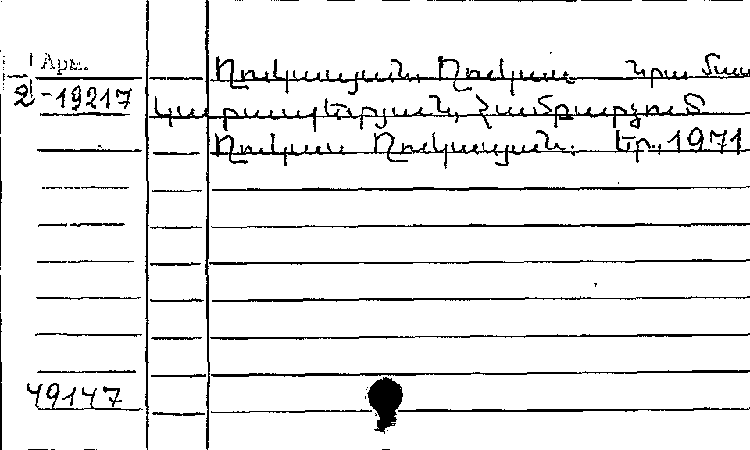 Арм.
Ղուկասյան, Ղուկաս նրա մաս
2-19217
Կարապետյան, Համբարձում
Ղուկաս Ղուկասյան. Եր., 1971
49147